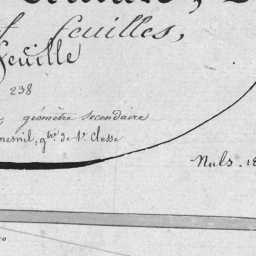 feuilles,
feuille
238
géomètre secondaire
mesnil, g.tre de 1e Classe
Nuls. 18